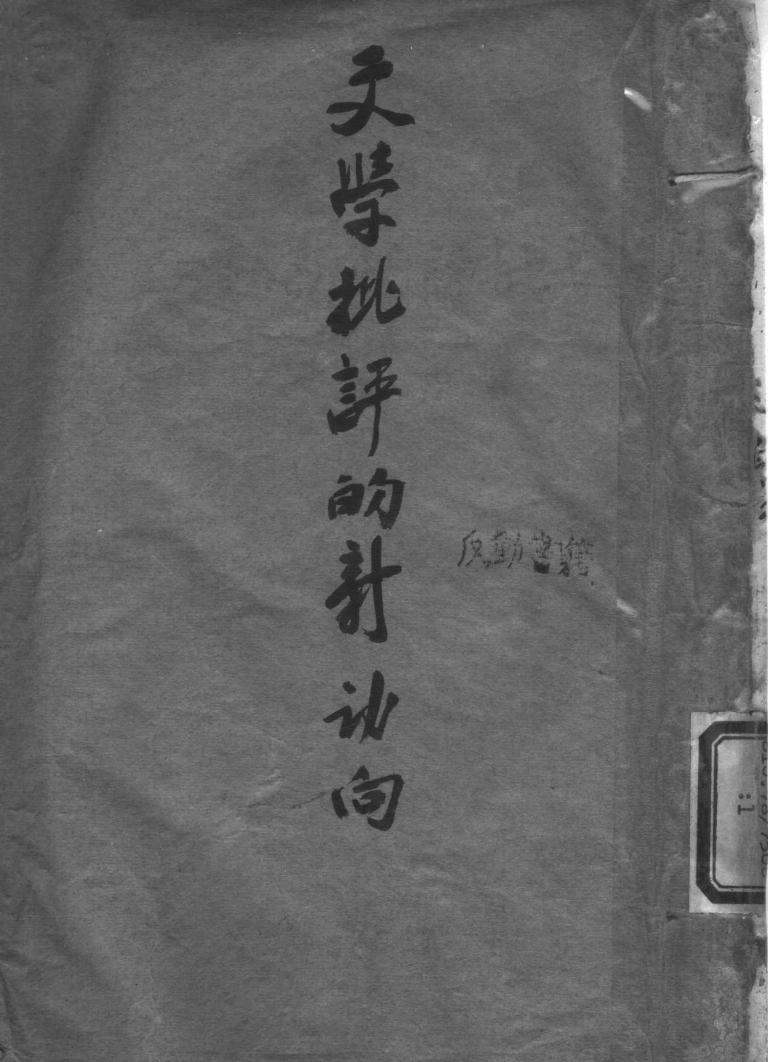 文學批評的新动向
反動書籍